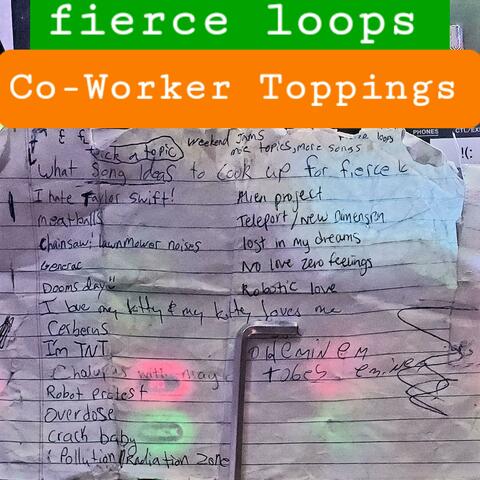 fierce loops
Co-Worker Toppings
PHONES
pick a topic weekend jams
more topics, more songs
What Song Ideas to cook up for fierce
I hate Taylor Swift! Alien project
meatballs Teleport/New Dimension
Chainsaw: lawnmower noises lost in my dreams
Generac No love zero feelings
Dooms day Robotic love
I love my kitty & my kitty loves me
Cerberus
I'm TNT old eminem
with may
Robot protest
Overdose
Crack baby
Pollution/Radiation zone